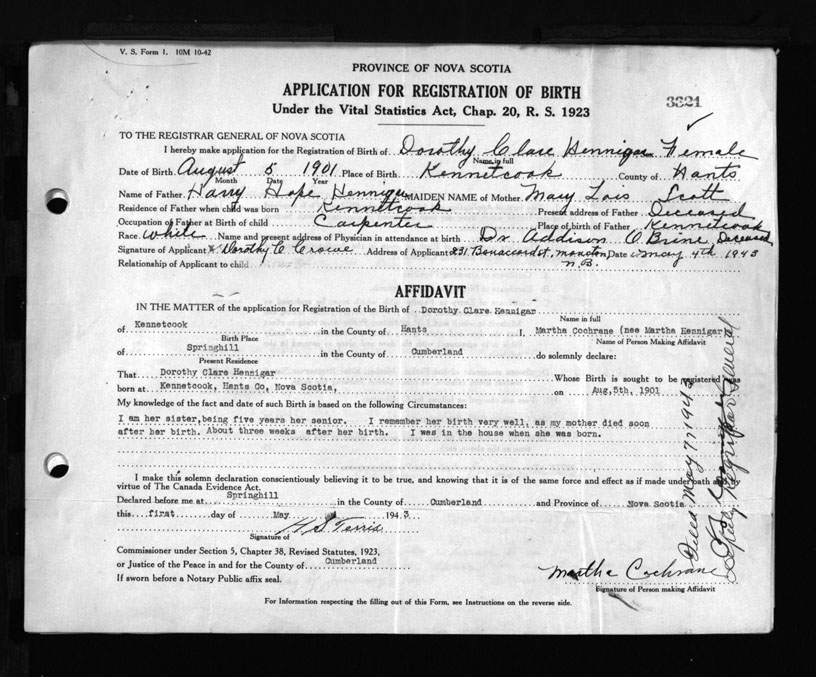 V. S. Form 1. 10M 10-42
PROVINCE OF NOVA SCOTIA
APPLICATION FOR REGISTRATION OF BIRTH
3321
Under the Vital Statistics Act, Chap. 20, R. S. 1923
TO THE REGISTRAR GENERAL OF NOVA SCOTIA
I hereby make application for the Registration of Birth of Dorothy Clare Hennigar Female
Name in full
Date of Birth August 5 1901 Place of Birth Kennetcook County of Hants
Month Date Year
Name of Father Harry Hope Hennigar MAIDEN NAME of Mother Mary Lois Scott
Residence of Father when child was born Kennetcook Present address of Father Deceased
Occupation of Father at Birth of child Carpenter Place of birth of Father Kennetcook
Race White Name and present address of Physician in attendance at birth Dr Addison O'Brine, Deceased
Signature of Applicant x Dorothy C Crowe Address of Applicant 231 Bonaccord st, moncton Date May 4th 1943
Relationship of Applicant to child N.B.
AFFIDAVIT
IN THE MATTER of the application for Registration of the Birth of Dorothy Clare Hennigar
Name in full
of Kennetcook in the County of Hants I, Martha Cochrane (nee Martha Hennigar)
Birth Place Name of Person Making Affidavit
of Springhill in the County of Cumberland do solemnly declare:
Present Residence
That Dorothy Clare Hennigar Whose Birth is sought to be registered was
born at Kennetcook, Hants Co, Nova Scotia, on Aug, 5th, 1901
My knowledge of the fact and date of such Birth is based on the following Circumstances:
I am her sister, being five years her senior. I remember her birth very well, as my mother died soon
after her birth. About three weeks after her birth. I was in the house when she was born.
I make this solemn declaration conscientiously believing it to be true, and knowing that it is of the same force and effect as if made under oath and by
virtue of The Canada Evidence Act.
Declared before me at Springhill in the County of Cumberland and Province of Nova Scotia
this first day of May 1943
Signature of
Commissioner under Section 5, Chapter 38, Revised Statutes, 1923,
or Justice of the Peace in and for the County of Cumberland
If sworn before a Notary Public affix seal.
Martha Cochrane
Signature of Person making Affidavit
For Information respecting the filling out of this Form, see Instructions on the reverse side.
Filed May 7, 1943
Registrar General